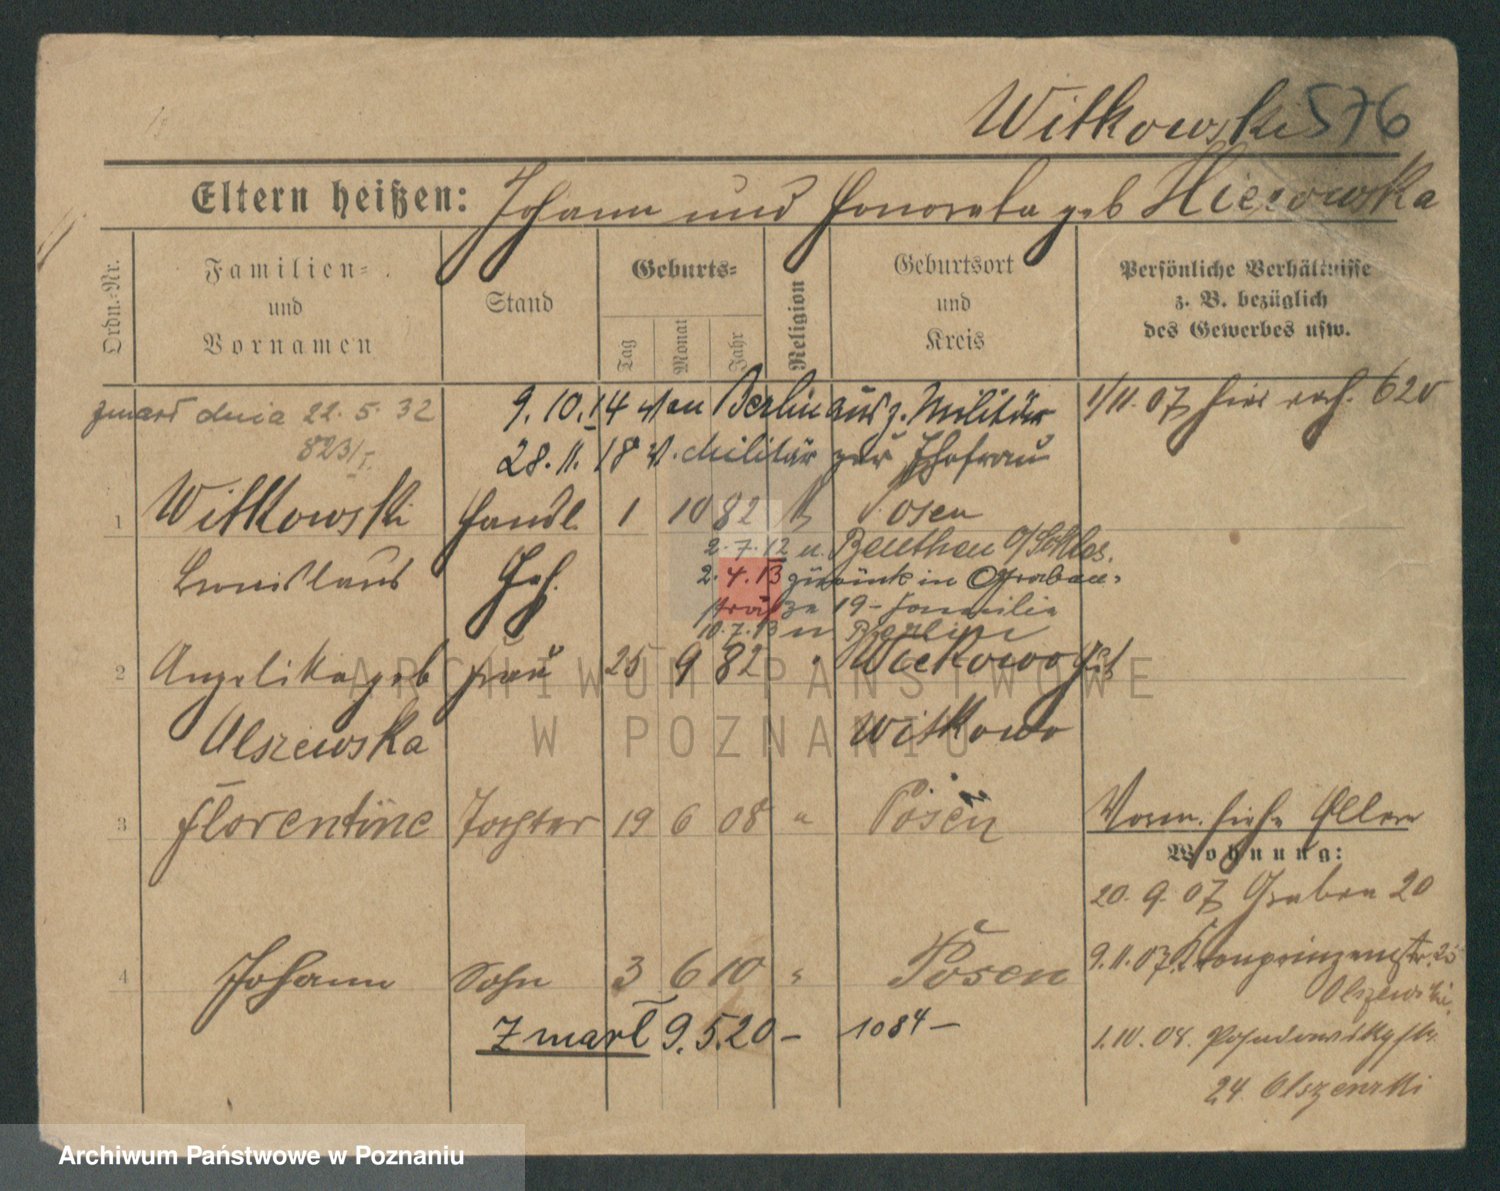 Witkowski 576
Eltern heißen: Johann und Honorata geb
Ordn.-Nr.
Familien-
und
Vornamen
Stand
Geburts-
Tag
Monat
Jahr
Religion
Geburtsort
und
Kreis
Persönliche Verhältnisse
z. B. bezüglich
des Gewerbes usw.
zmarł dnia 22. 5. 32
823/I.
9. 10. 14 von Berlin ausz. Militär
28. 11. 18 v. Militär zur Ehefrau
1/11. 07 hier 620
1 Witkowski Handl. 1 10 82 k Posen
Bronislaus Geh.
2. 7. 12 n. Beuthen O/Schles.
2. 4. 13 zurück in Graben-
straße 19 - Familie
10. 7. 13 n Berlin
2 Angelika geb Frau 25 9 82 " Wiekowo
Olszewska Witkowo
3 Florentine Tochter 19 6 08 " Posen
Vorm. siehe Eltern
Wohnung:
20. 9. 07 Graben 20
4 Johann Sohn 3 6 10 " Posen
9. 11. 07. Kronprinzenstr. 25
Olszewski
Zmarł 9. 5. 20 - 1084 -
1. 10. 08.
24. Olszewski
ARCHIWUM PAŃSTWOWE
W POZNANIU
Archiwum Państwowe w Poznaniu